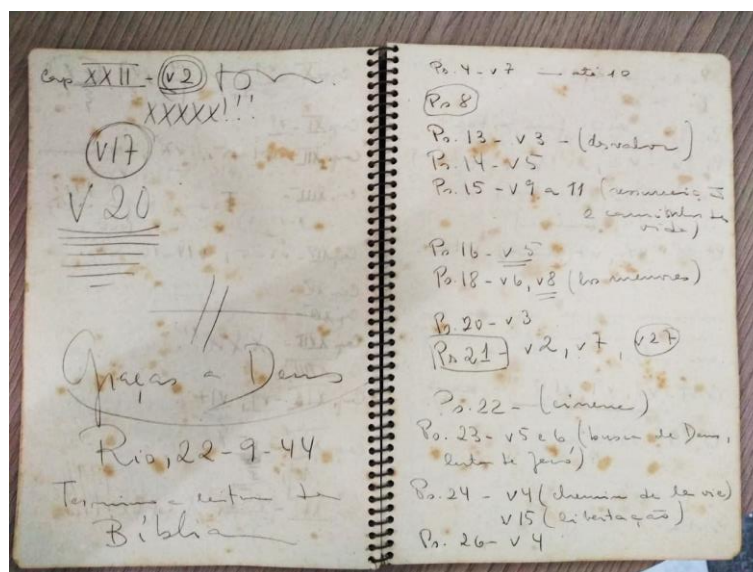 Cap XXII - v2
XXXXX!!!
v17
V 20
Graças a Deus
Rio, 22-9-44
Termina a leitura da
Bíblia
Ps. 4 - v7 — até 10
Ps 8
Ps. 13 - v3 - (desvalor)
Ps. 14 - v5
Ps. 15 - v9 a 11 (
vida)
Ps. 16 - v5
Ps. 18 - v6, v8 (los menores)
Ps. 20 - v3
Ps 21 - v2, v7, v27
Ps. 22 - (
Ps. 23 - v5 e 6 (busca de Deus,
Ps. 24 - v4 (chemin de la vie)
v15 (libertação)
Ps. 26 - v4